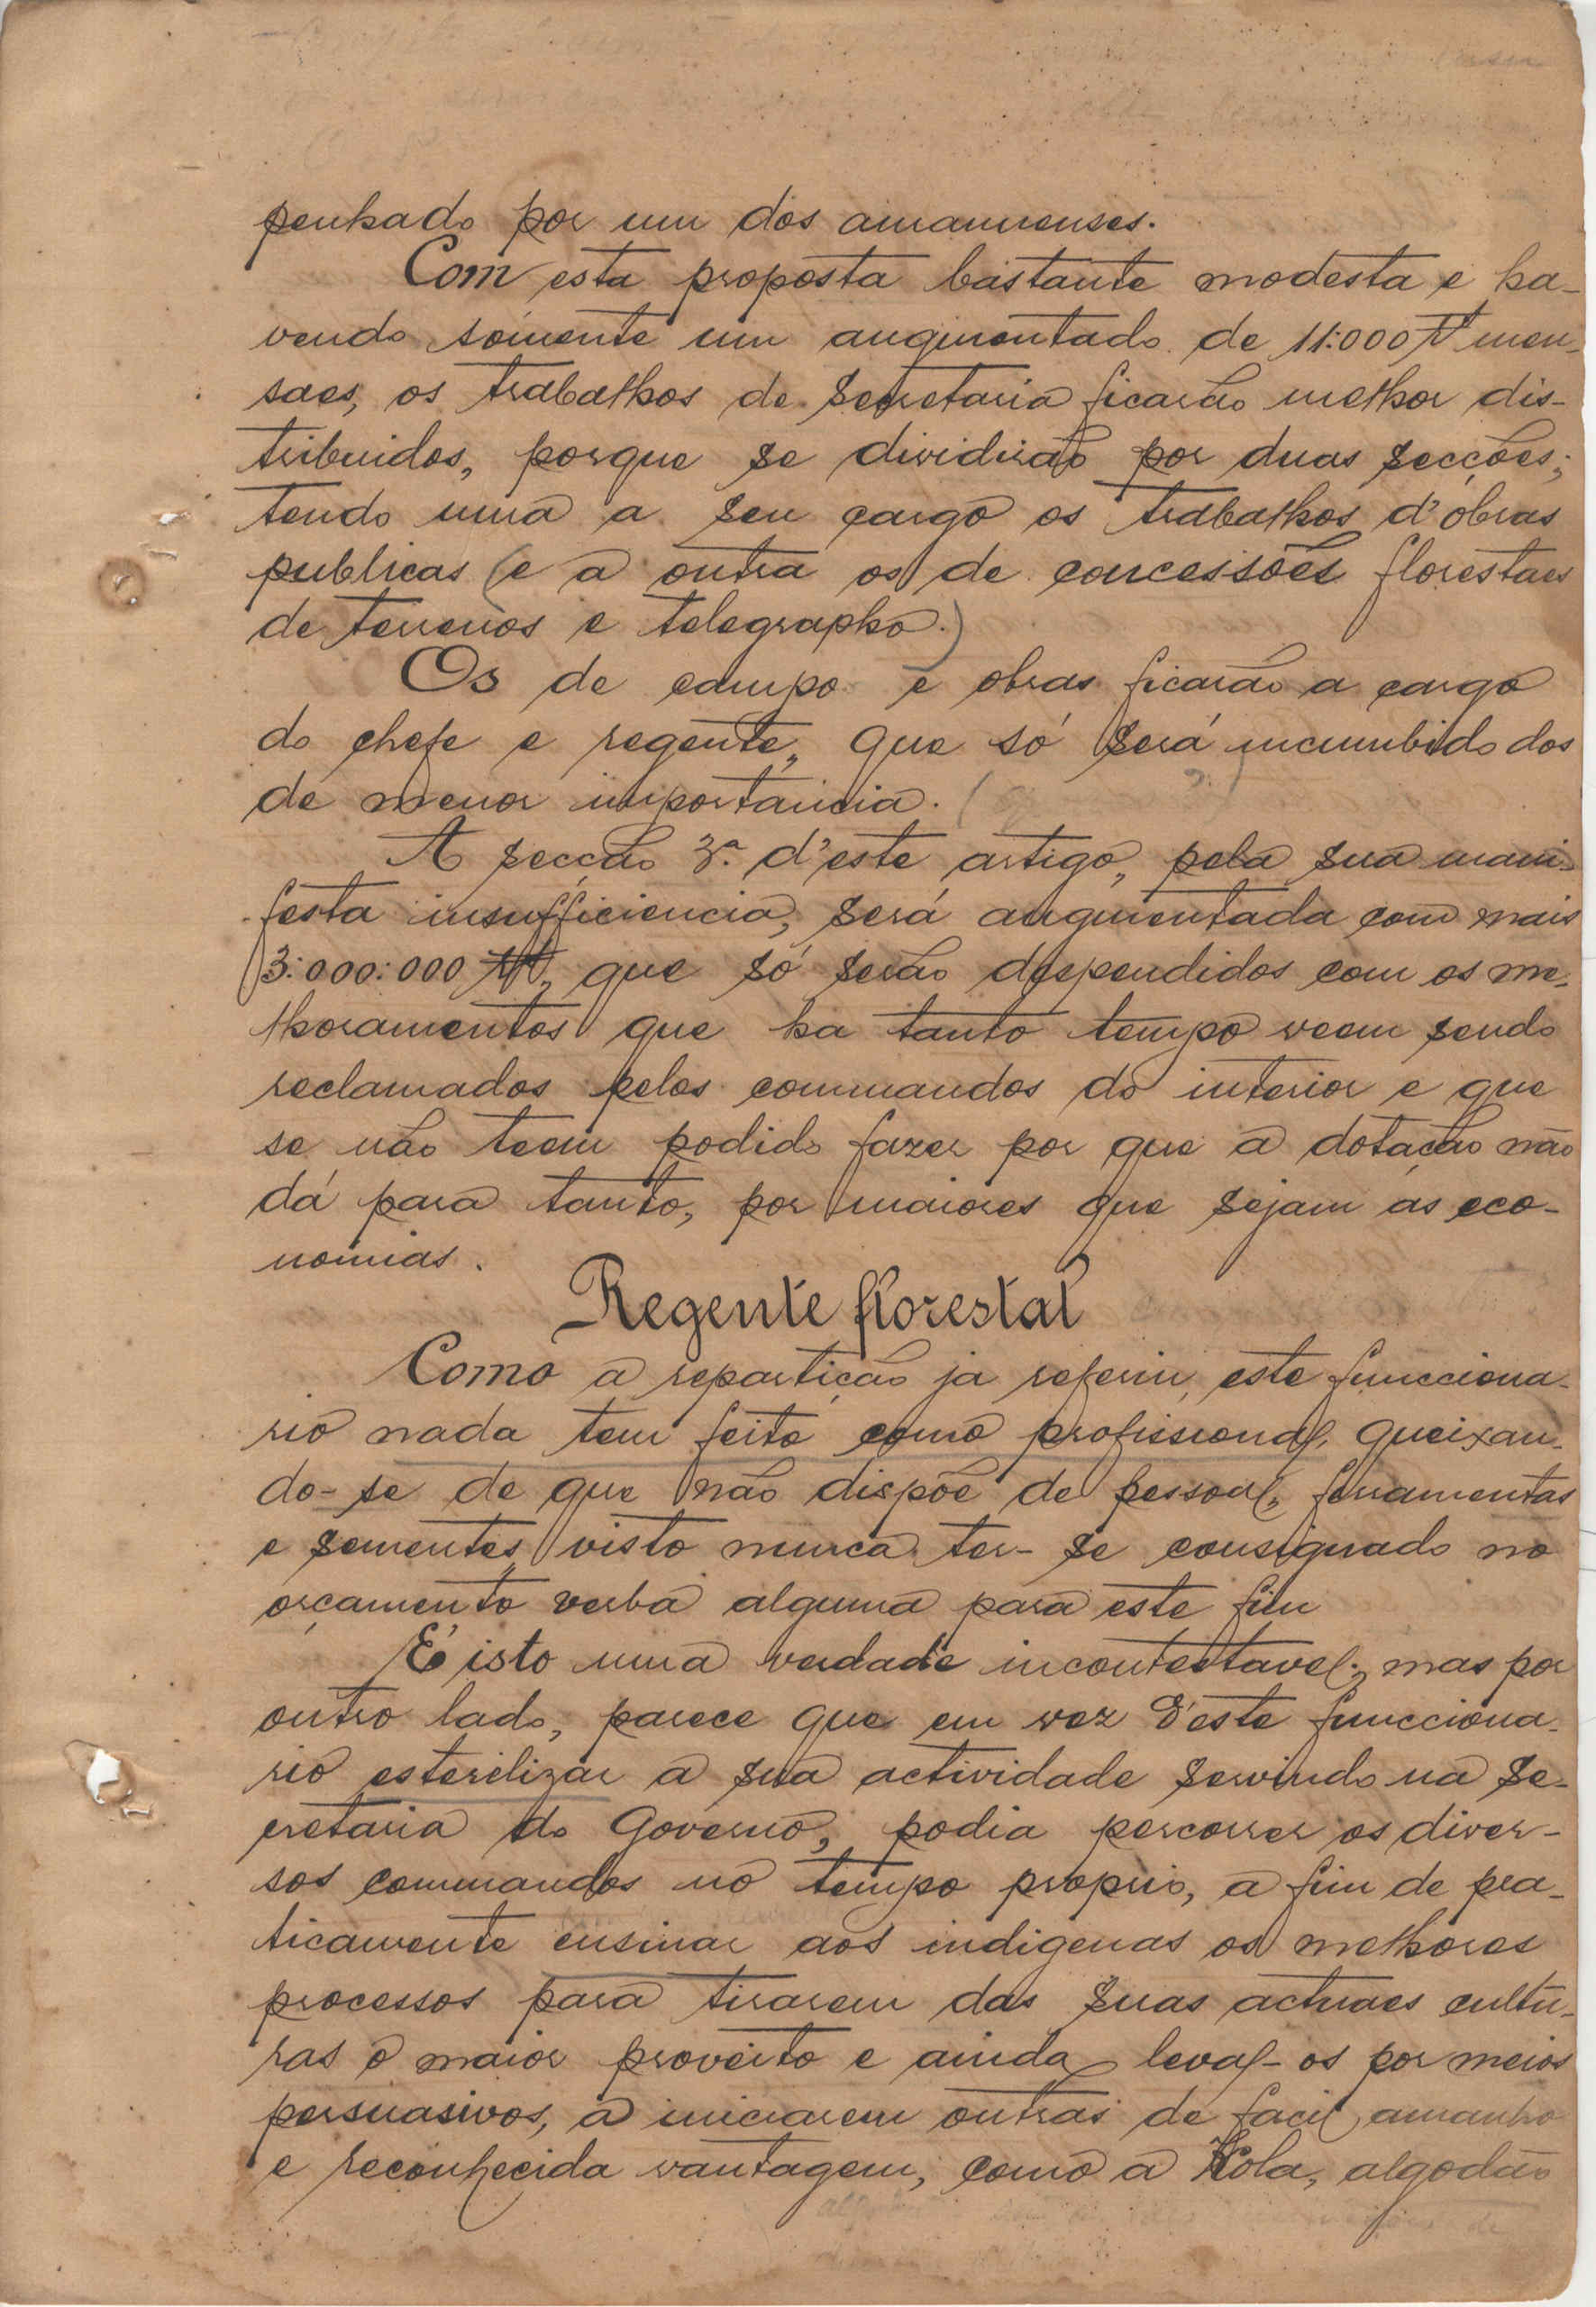 penhado por um dos amanuenses.
Com esta proposta bastante modesta e ha-
vendo sómente um augmentado de 11:000 rs men-
saes, os trabalhos de secretaria ficarão melhor dis-
tribuidos, porque se dividirão por duas secções;
tendo uma a seu cargo os trabalhos d'obras
publicas (e a outra os de concessões florestaes
de terrenos e telegrapho.)
Os de campo e obras ficarão a cargo
do chefe e regente, que só será incumbido dos
de menor importancia.
A secção 3.ª d'este artigo, pela sua mani-
festa insufficiencia, será augmentada com mais
3:000:000 rs, que só serão despendidos com os me-
lhoramentos que ha tanto tempo veem sendo
reclamados pelos commandos do interior e que
se não teem podido fazer por que a dotação não
dá para tanto, por maiores que sejam as eco-
nomias.
Regente florestal
Como a repartição ja referiu, este funcciona-
rio nada tem feito como profissional, queixan-
do-se de que não dispõe de pessoal, ferramentas
e sementes, visto nunca ter-se consignado no
orçamento verba alguma para este fim
É isto uma verdade incontestavel; mas por
outro lado, parece que em vez d'este funcciona-
rio esterilizar a sua actividade servindo na se-
cretaria do Governo, podia percorrer os diver-
sos commandos no tempo proprio, a fim de pra-
ticamente ensinar aos indigenas os melhores
processos para tirarem das suas actuaes cultu-
ras o maior proveito e ainda leval-os por meios
persuasivos, a iniciarem outras de facil amanho
e reconhecida vantagem, como a Kola, algodão